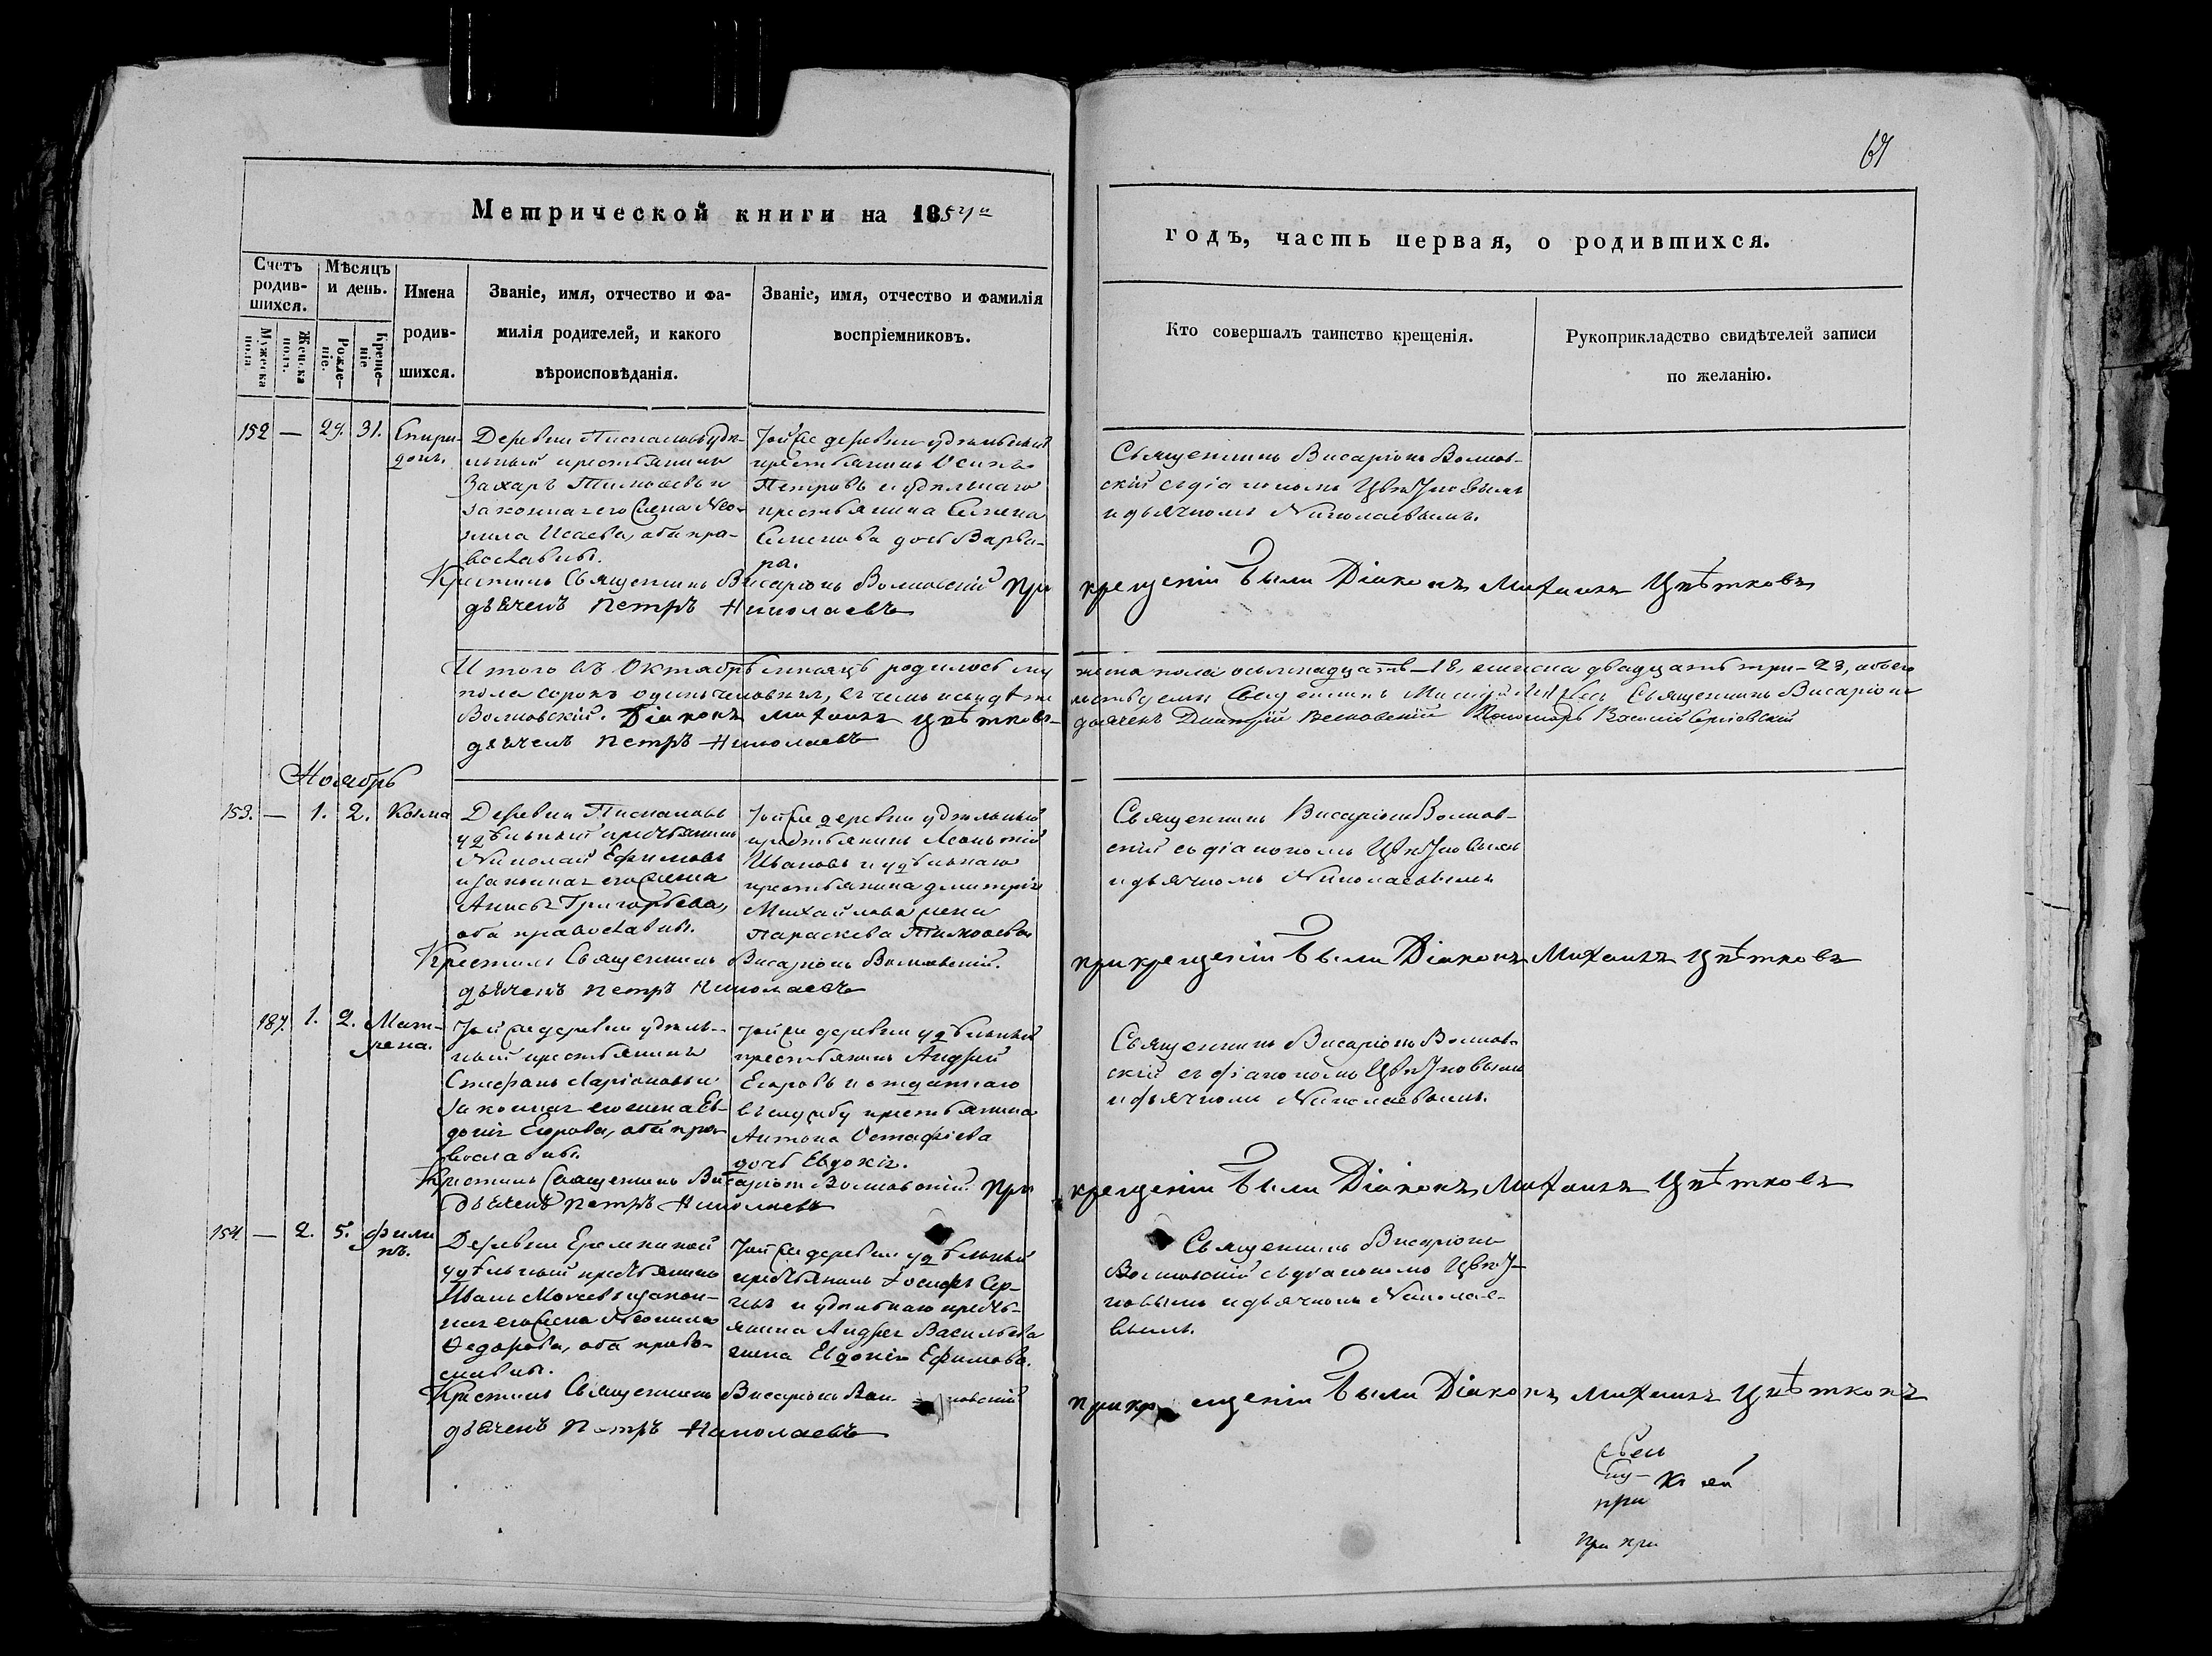 67
Метрической книги на 1854й
годъ, часть первая, о родившихся.
Счетъ родив-шихся.
Мужеска пола
Женска полъ.
Мѣсяцъ и день.
Рожде-ніе.
Креще-ніе
Имена
родив-
шихся.
Званіе, имя, отчество и фа-
милія родителей, и какого
вѣроисповѣданія.
Званіе, имя, отчество и фамилія
воспріемниковъ.
Кто совершалъ таинство крещенія.
Рукоприкладство свидѣтелей записи
по желанію.
152 — 29. 31. Спири-
донъ.
Деревни удѣ-
льный крестьянинъ
Захаръ Тимоѳеевъ и
законная его жена Нео-
нила Исаева, оба пра-
вославны.
Той же деревни удѣльный
крестьянинъ Осипъ
Петровъ и удѣльнаго
крестьянина Семена
Семенова дочь Варва-
ра.
Священникъ Висаріонъ Волнов-
скій съ діакономъ Цвѣтковымъ
и дьячкомъ Николаевымъ.
Крестилъ Священникъ Висаріонъ Волновскій при крещеніи были Діаконъ Михаилъ Цвѣтковъ
дьячекъ Петръ Николаевъ
Итого въ Октябрѣ мѣсяцѣ родилось му жеска пола осьмнадцать—18, женска двадцать три—23, обоего
пола сорокъ одинъ человѣкъ, въ чемъ и свидѣте льствуемъ Священникъ Священникъ Висаріонъ
Волновскій. Діаконъ Михаилъ Цвѣтковъ дьячекъ Дмитрій Пономарь Василій
дьячекъ Петръ Николаевъ
Ноябрь
153. — 1. 2. Козма
Деревни
удѣльный крестьянинъ
Николай Ефимовъ
и законная его жена
Анисья Григорьева,
оба православны.
Той же деревни удѣльный
крестьянинъ Леонтій
Ивановъ и удѣльнаго
крестьянина Дмитрія
Михайлова жена
Параскева Тимоѳеева
Священникъ Висаріонъ Волнов-
скій съ діакономъ Цвѣтковымъ
и дьячкомъ Николаевымъ
Крестилъ Священникъ Висаріонъ Волновскій. при крещеніи были Діаконъ Михаилъ Цвѣтковъ
дьячекъ Петръ Николаевъ
187. 1. 2. Мат-
рена.
Той же деревни удѣль-
ный крестьянинъ
Стефанъ Ларіоновъ и
законная его жена Ев-
докія Егорова, оба пра-
вославны.
Той же деревни удѣльный
крестьянинъ Андрей
Егоровъ и отданнаго
въ службу крестьянина
Антона Остафіева
дочь Евдокія.
Священникъ Висаріонъ Волнов-
скій съ діакономъ Цвѣтковымъ
и дьячкомъ Николаевымъ.
Крестилъ Священникъ Висаріонъ Волновскій при крещеніи были Діаконъ Михаилъ Цвѣтковъ
дьячекъ Петръ Николаевъ
154. — 2. 5. Фили
пъ.
Деревни Еремкиной
удѣльный крестьянинъ
Иванъ Моисеевъ и закон-
ная его жена Неонила
Ѳедорова, оба право-
славны.
Той же деревни удѣльный
крестьянинъ Іосифъ Сер-
гѣевъ и удѣльнаго кресть-
янина Андрея Васильева
жена Евдокія Ефимова.
Священникъ Висаріонъ
Волновскій съ діакономъ Цвѣт-
ковымъ и дьячкомъ Николае-
вымъ.
Крестилъ Священникъ Висаріонъ Вол новскій при кр ещеніи были Діаконъ Михаилъ Цвѣтковъ
дьячекъ Петръ Николаевъ
при
при при